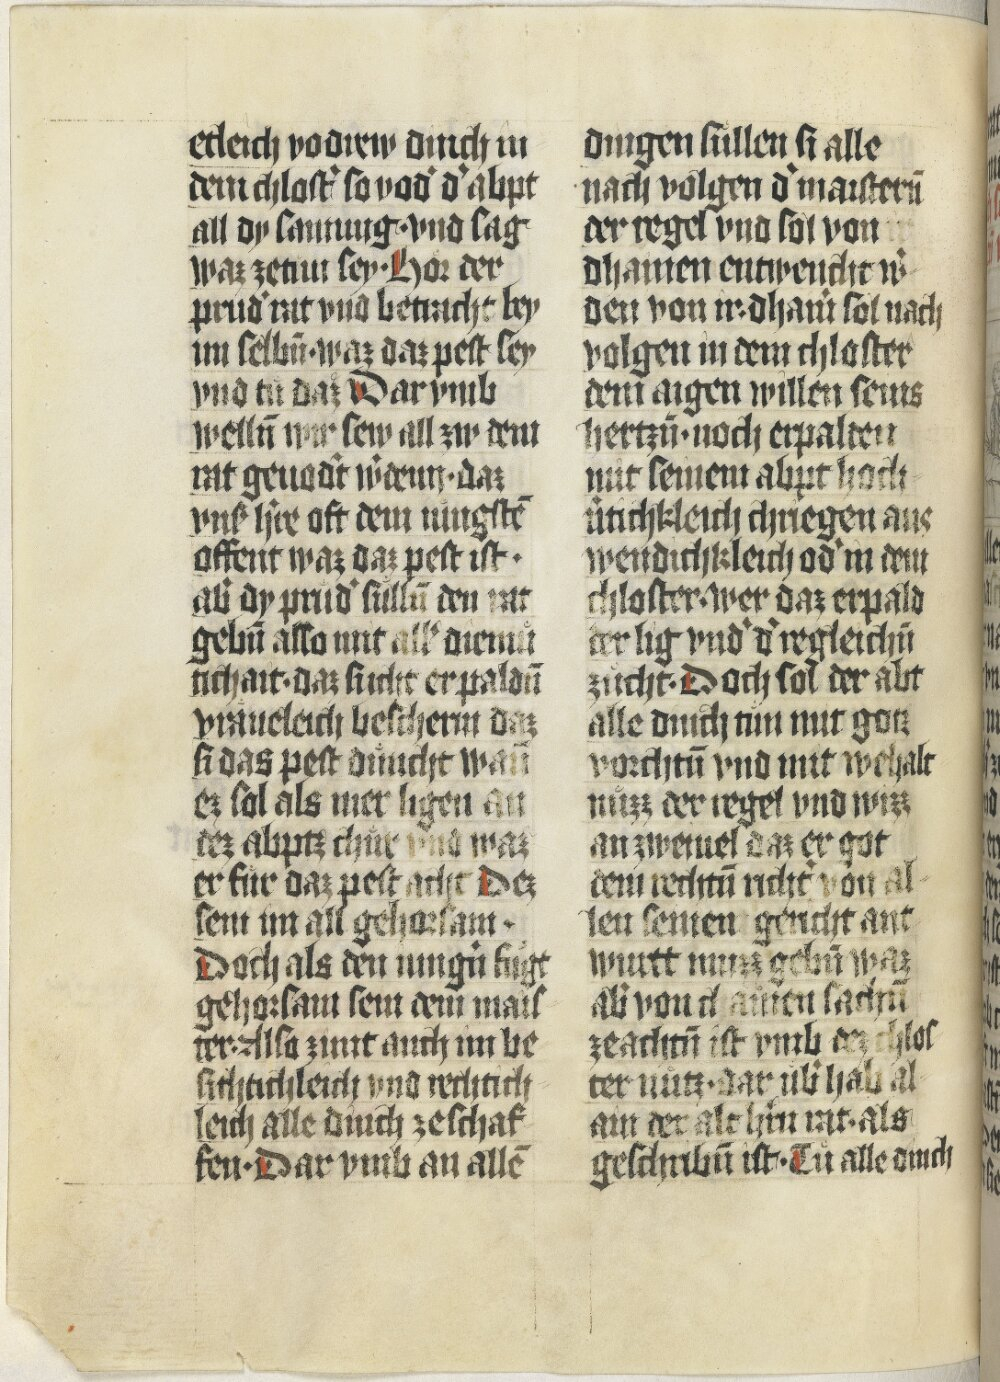 etleich vodrew dinch in
dem chlost' so vod' d' abpt
all dy samnung · vnd sag
waz zetun sey · Hor der
prud' rat vnd betracht bey
im selbn̄ · waz daz pest sey
vnd tu daz Dar vmb
welln̄ wir sew all zw dem
rat geuod't w'denn · daz
vnß h're oft dem iungstē
offent waz daz pest ist ·
ab' dy prud' sulln̄ den rat
gebn̄ also mit all' diemu
tichait · daz sicht erpaldn̄
vraueleich bescherm daz
si das pest duncht wan̄
ez sol als mer ligen an
dez abptz chur vnd waz
er fur daz pest acht Dez
sein im all gehorsam ·
Doch als den iungn̄ fugt
gehorsam sein dem mais
ter · Also zimt auch im be
sichtichleich vnd rechtich
leich alle dinch zeschaf
fen · Dar vmb an allē
dingen sullen si alle
nach volgen d' maistern̄
der regel vnd sol von
dhainen entwencht w'
den von ir · dhain' sol nach
volgen in dem chloster
dem aigen willen seins
hertzn̄ · noch erpalten
mit seinem abpt hoch
u'tichkleich chriegen aus
wendichkleich od' in dem
chloster · wer daz erpald
der lig vnd' d' regleichn̄
zucht · Doch sol der abt
alle dinch tun mit gotz
vorchtn̄ vnd mit wehalt
nuzz der regel vnd wizz
an zweiuel daz er got
dem rechtn̄ richt' von al
len seinen gericht ant
wurtt muzz gebn̄ waz
ab' von chlainen sachn̄
zeachtn̄ ist vmb dez chlos
ter nutz · dar ub' hab al
ain der alt h'rn rat · als
geschribn̄ ist · Tu alle dinch